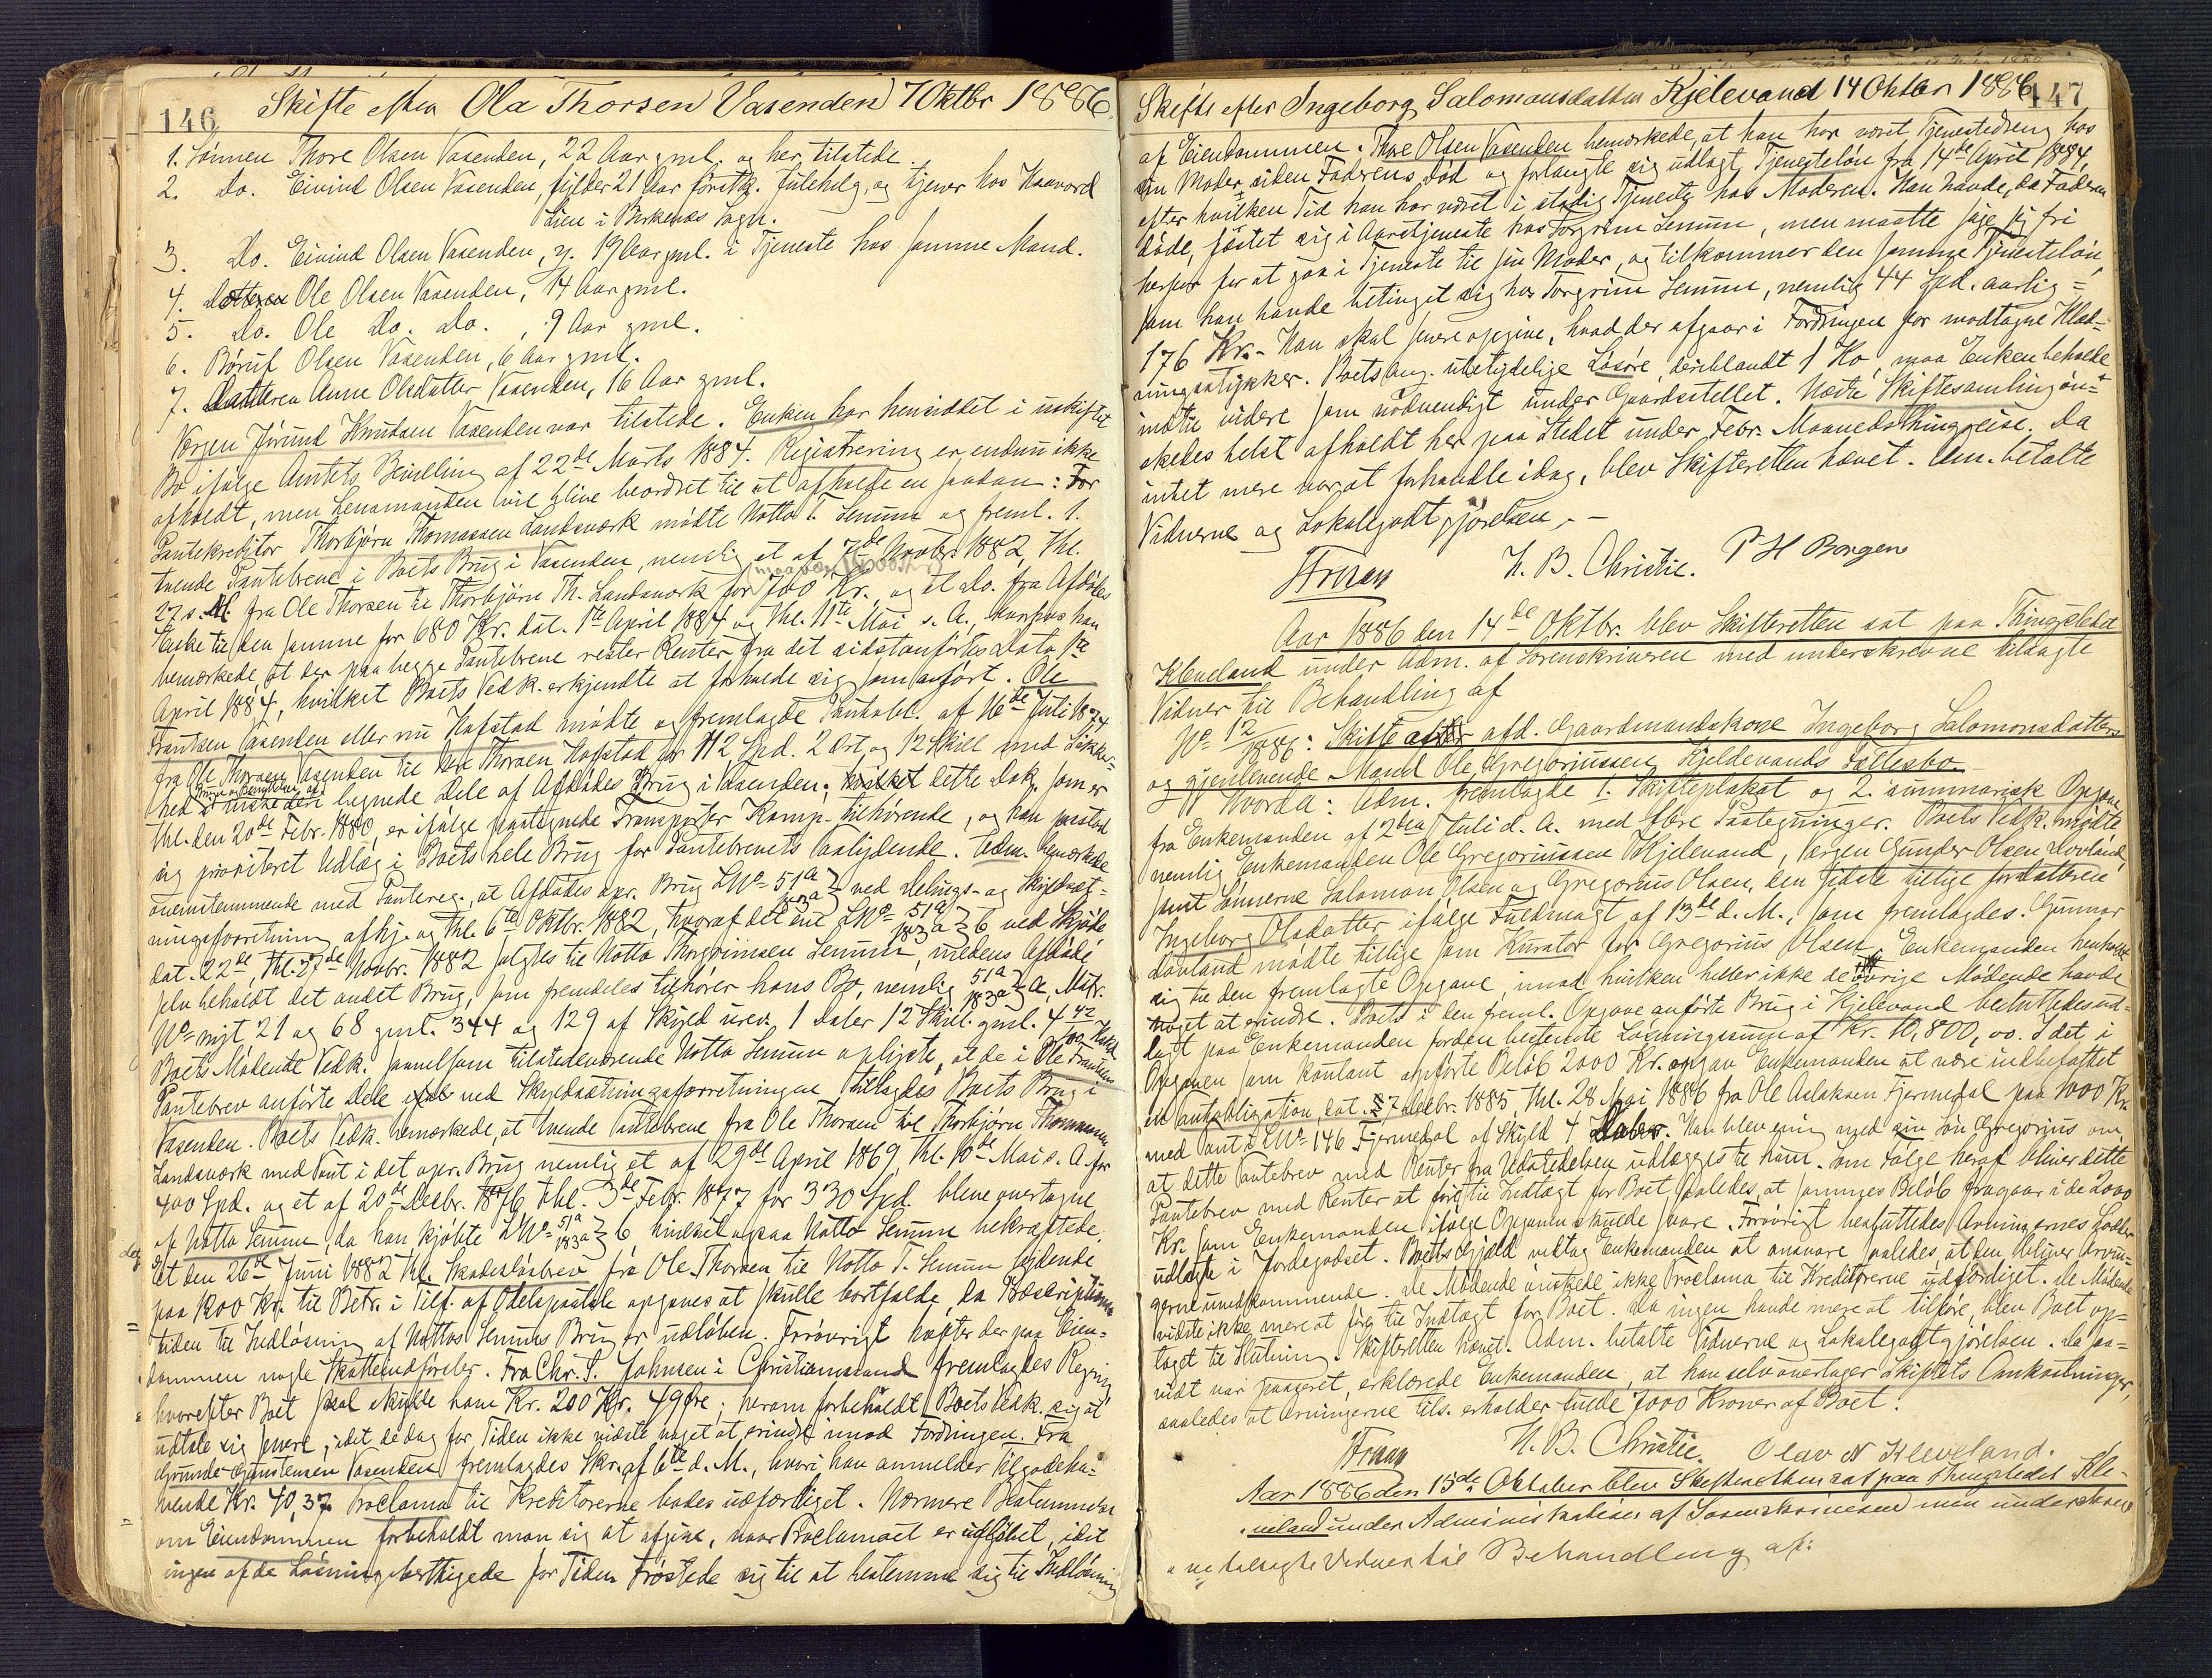 146
Skifte efter Ola Thorsen Vasenden 7 Oktbr 1886
1. Sønnen Thore Olsen Vasenden, 22 Aar gml. og her tilstede.
2. Do. Eivind Olsen Vasenden, fylder 21 Aar førstk. Julehelg, og tjener hos Haavord
Lien i Birkenæs Sogn.
3. Do. Eivind Olsen Vasenden, y. 19 Aar gml. i Tjeneste hos samme Mand.
4. Ole Olsen Vasenden, 14 Aar gml.
5. Do. Ole Do. Do., 9 Aar gml.
6. Børuf Olsen Vasenden, 6 Aar gml.
7. Datteren Anne Olsdatter Vasenden, 16 Aar gml.
Vergen Jørund Knudsen Vasenden var tilstede. Enken har hensiddet i uskiftet
Bo ifølge Amtets Bevilling af 22de Marts 1884. Registrering er endnu ikke
afholdt, men Lensmanden vil blive beordret til at afholde en saadan: For
Pantekreditor Thorbjørn Thomassen Landsværk mødte Notto T. Senum og freml. 1.
tvende Pantebreve i Boets Brug i Vasenden, nemlig et af 7de Novbr. 1882, thl.
27 s. M. fra Ole Thorsen til Thorbjørn Th. Landsværk for 700 Kr. og et do. fra Afdødes
Enke til den samme for 680 Kr. dat. 1te April 1884 og thl. 11te Mai s. A., hvorhos han
bemærkede, at der paa begge Pantebreve rester Renter fra det sidstanførtes Dato 1te
April 1884, hvilket Boets Vedk. erkjendte at forholde sig som anført. Ole
Frantsen Vasenden eller nu Hafstad mødte og fremlagde Pantobl. af 16de Juli 1874
fra Ole Thorsen Vasenden til Thorsen Hafstad for 112 Spd. 2 Ort og 12 Skill med Sikker-
hed i dele af Afdødes Brug i Vasenden; dette Dok. som er
thl. den 20de Febr. 1880, er ifølge paategnede Transporter Komp. tilhørende, og han paastod
sig prioriteret Udlæg i Boets hele Brug for Pantebrevets Paalydende. Adm. bemærkede
overensstemmende med Pantereg., at Afdødes opr. Brug LNo 51a 183a ved Delings- og Skyldsæt-
ningsforretning afhj. og thl. 6te Oktbr. 1882, hvoraf det ene LNo 51a 183a 6 ved Skjøde
dat. 22de, thl. 27de Novbr. 1882 solgtes til Notto Thorgrimsen Senum, medens Afdøde
selv beholdt det andet Brug, som fremdeles tilhører hans Bo, nemlig 51a 183a a, Matr.
No nyt 21 og 68 gml. 344 og 129 af Skyld urev. 1 Daler 12 Skill. gml. 4 42/100 Mark.
Boets Mødende Vedk. saavelsom tilstedeværende Notto Senum oplyste, at de i Ole Frantsens
Pantebrev anførte Dele ved Skyldsætningsforretningen tillagdes Boets Brug i
Vasenden. Boets Vedk. bemærkede, at tvende Pantebreve fra Ole Thorsen til Thorbjørn Thomassen
Landsværk med Pant i det opr. Brug nemlig et af 29de April 1869, thl. 10de Mai s. A. for
400 Spd. og et af 20de Decbr. 1876 thl. 3de Febr. 1877 for 330 Spd. bleve overtagne
af Notto Senum, da han kjøbte LNo 51a 183a 6 hvilket ogsaa Notto Senum bekræftede.
Et den 26de Juni 1882 thl. Skadesløsbrev fra Ole Thorsen til Notto T. Senum lydende
paa 1200 Kr. til Betr. i Tilf. af Odelspaatale opgaves at skulle bortfalde, da Præskriptions-
tiden til Indløsning af Nottos Senums Brug er udløben. Forøvrigt hæfter der paa Eien-
dommen nogle Skatteudførsler. Fra Chr. S. Johnsen i Christianssand fremlagdes Regning
hvorefter Boet skal skylde ham Kr. 200 Kr. 49 Øre; herom forbeholdt Boets Vedk. sig at
udtale sig senere, idet de dog for Tiden ikke vidste noget at erindre imod Fordringen. Fra
Gunstensen Vasenden fremlagdes Skr. af 6te d. M., hvori han anmelder Tilgodeha-
vende Kr. 40,37. Proclama til Kreditorerne bades udfærdiget. Nærmere Bestemmelse
om Eiendommen forbeholdt man sig at afgive, naar Proclamaet er udløbet, idet
ingen af de Løsningsberettigede for Tiden trøstede sig til at bestemme sig til Indløsning
147
Skifte efter Ingeborg Salomonsdatter Kjelevand 14 Oktbr 1886
af Eiendommen. Thore Olsen Vasenden bemærkede, at han har været Tjenestedreng hos
sin Moder siden Faderens Død og forlangte sig udlagt Tjenesteløn fra 14de April 1884,
efter hvilken Tid han har været i stadig Tjeneste hos Moderen. Han havde, da Faderen
døde, fæstet sig i Aarstjeneste hos Torgrim Senum, men maatte sige sig fri
herfor for at gaa i Tjeneste til sin Moder, og tilkommer den samme Tjenesteløn,
som han havde betinget sig hos Torgrim Senum, nemlig 44 Spd. aarlig =
176 Kr. - Han skal senere opgive, hvad der afgaar i Fordringen for modtagne Klæd-
ningsstykker. Boets ang. ubetydelige Løsøre, deriblandt 1 Ko, maa Enken beholde
indtil videre som nødvendigt under Gaardsstellet. Næste Skiftesamling øn-
skedes helst afholdt her paa Stedet under Febr. Maanedsthingreise. Da
intet mere var at forhandle idag, blev Skifteretten hævet. Adm. betalte
Vidnerne og Lokalegodtgjørelsen. -
H. B. Christie. P H Borgen
Aar 1886 den 14de Oktbr. blev Skifteretten sat paa Thingstedet
Kleveland under Adm. af Sorenskriveren med underskrevne tilsagte
Vidner til Behandling af
No 12/1886: Skifte afd. Gaardmandskone Ingeborg Salomonsdatters
og gjenlevende Mand Ole Gregoriussen Kjeldevands Fællesbo.
Hvorda: Adm. fremlagde 1. Skifteplakat og 2. summarisk Opgave
fra Enkemanden af 2den Juli d. A. med flere Paategninger. Boets Vedk. mødte
nemlig Enkemanden Ole Gregoriussen Kjelevand, Vergen Gunder Olsen Dovland,
samt Sønnerne Salomon Olsen og Gregorius Olsen, den sidste tillige for Datteren
Ingeborg Olsdatter ifølge Fuldmagt af 13de d. M., som fremlagdes. Gunnar
Dovland mødte tillige som Kurator for Gregorius Olsen. Enkemanden henholdt
sig til den fremlagte Opgave, imod hvilken heller ikke de øvrige Mødende havde
noget at erindre. Boets i den freml. Opgave anførte Brug i Kjelevand besluttedes ud-
lagt paa Enkemanden for den bestemte Løsningssum af Kr. 10,800,00. I det i
Opgaven som kontant opførte Beløb 2000 Kr. opgav Enkemanden at være indbefattet
en Pantobligation, dat. 7 Decbr. 1885, thl. 28 Mai 1886 fra Ole Aslaksen Fjermedal paa 1000 Kr.
med Pant i LNo 146 Fjermedal af Skyld 4 Daler. Han blev enig med sin Søn Gregorius om,
at dette Pantebrev med Renter fra Udstedelsen udlægges til ham. Som Følge heraf bliver dette
Pantebrev med Renter at føre til Indtægt for Boet saaledes, at sammes Beløb fragaar i de 2000
Kr. som Enkemanden ifølge Opgaven skulde svare. Forøvrigt besluttedes Arvingernes Lodder
udlagte i Jordegodset. Boets Gjæld vedtog Enkemanden at ansvare saaledes, at den bliver Arvin-
gerne uvedkommende. De Mødende ønskede ikke Proclama til Kreditorerne udfærdiget. De Mødende
vidste ikke mere at føre til Indtægt for Boet. Da ingen havde mere at tilføre, blev Boet op-
taget til Slutning. Skifteretten hævet. Adm. betalte Vidnerne og Lokalegodtgjørelsen. Da saa-
vidt var passeret, erklærede Enkemanden, at han selv overtager Skiftets Omkostninger,
saaledes at Arvingerne tils. erholder fulde 7000 Kroner af Boet.
H. B. Christie. Olav N Kleveland.
Aar 1886 den 15de Oktober blev Skifteretten sat paa Thingstedet Kle-
veland under Administration af Sorenskriveren med underskrev
ne tilsagte Vidner til Behandling af: